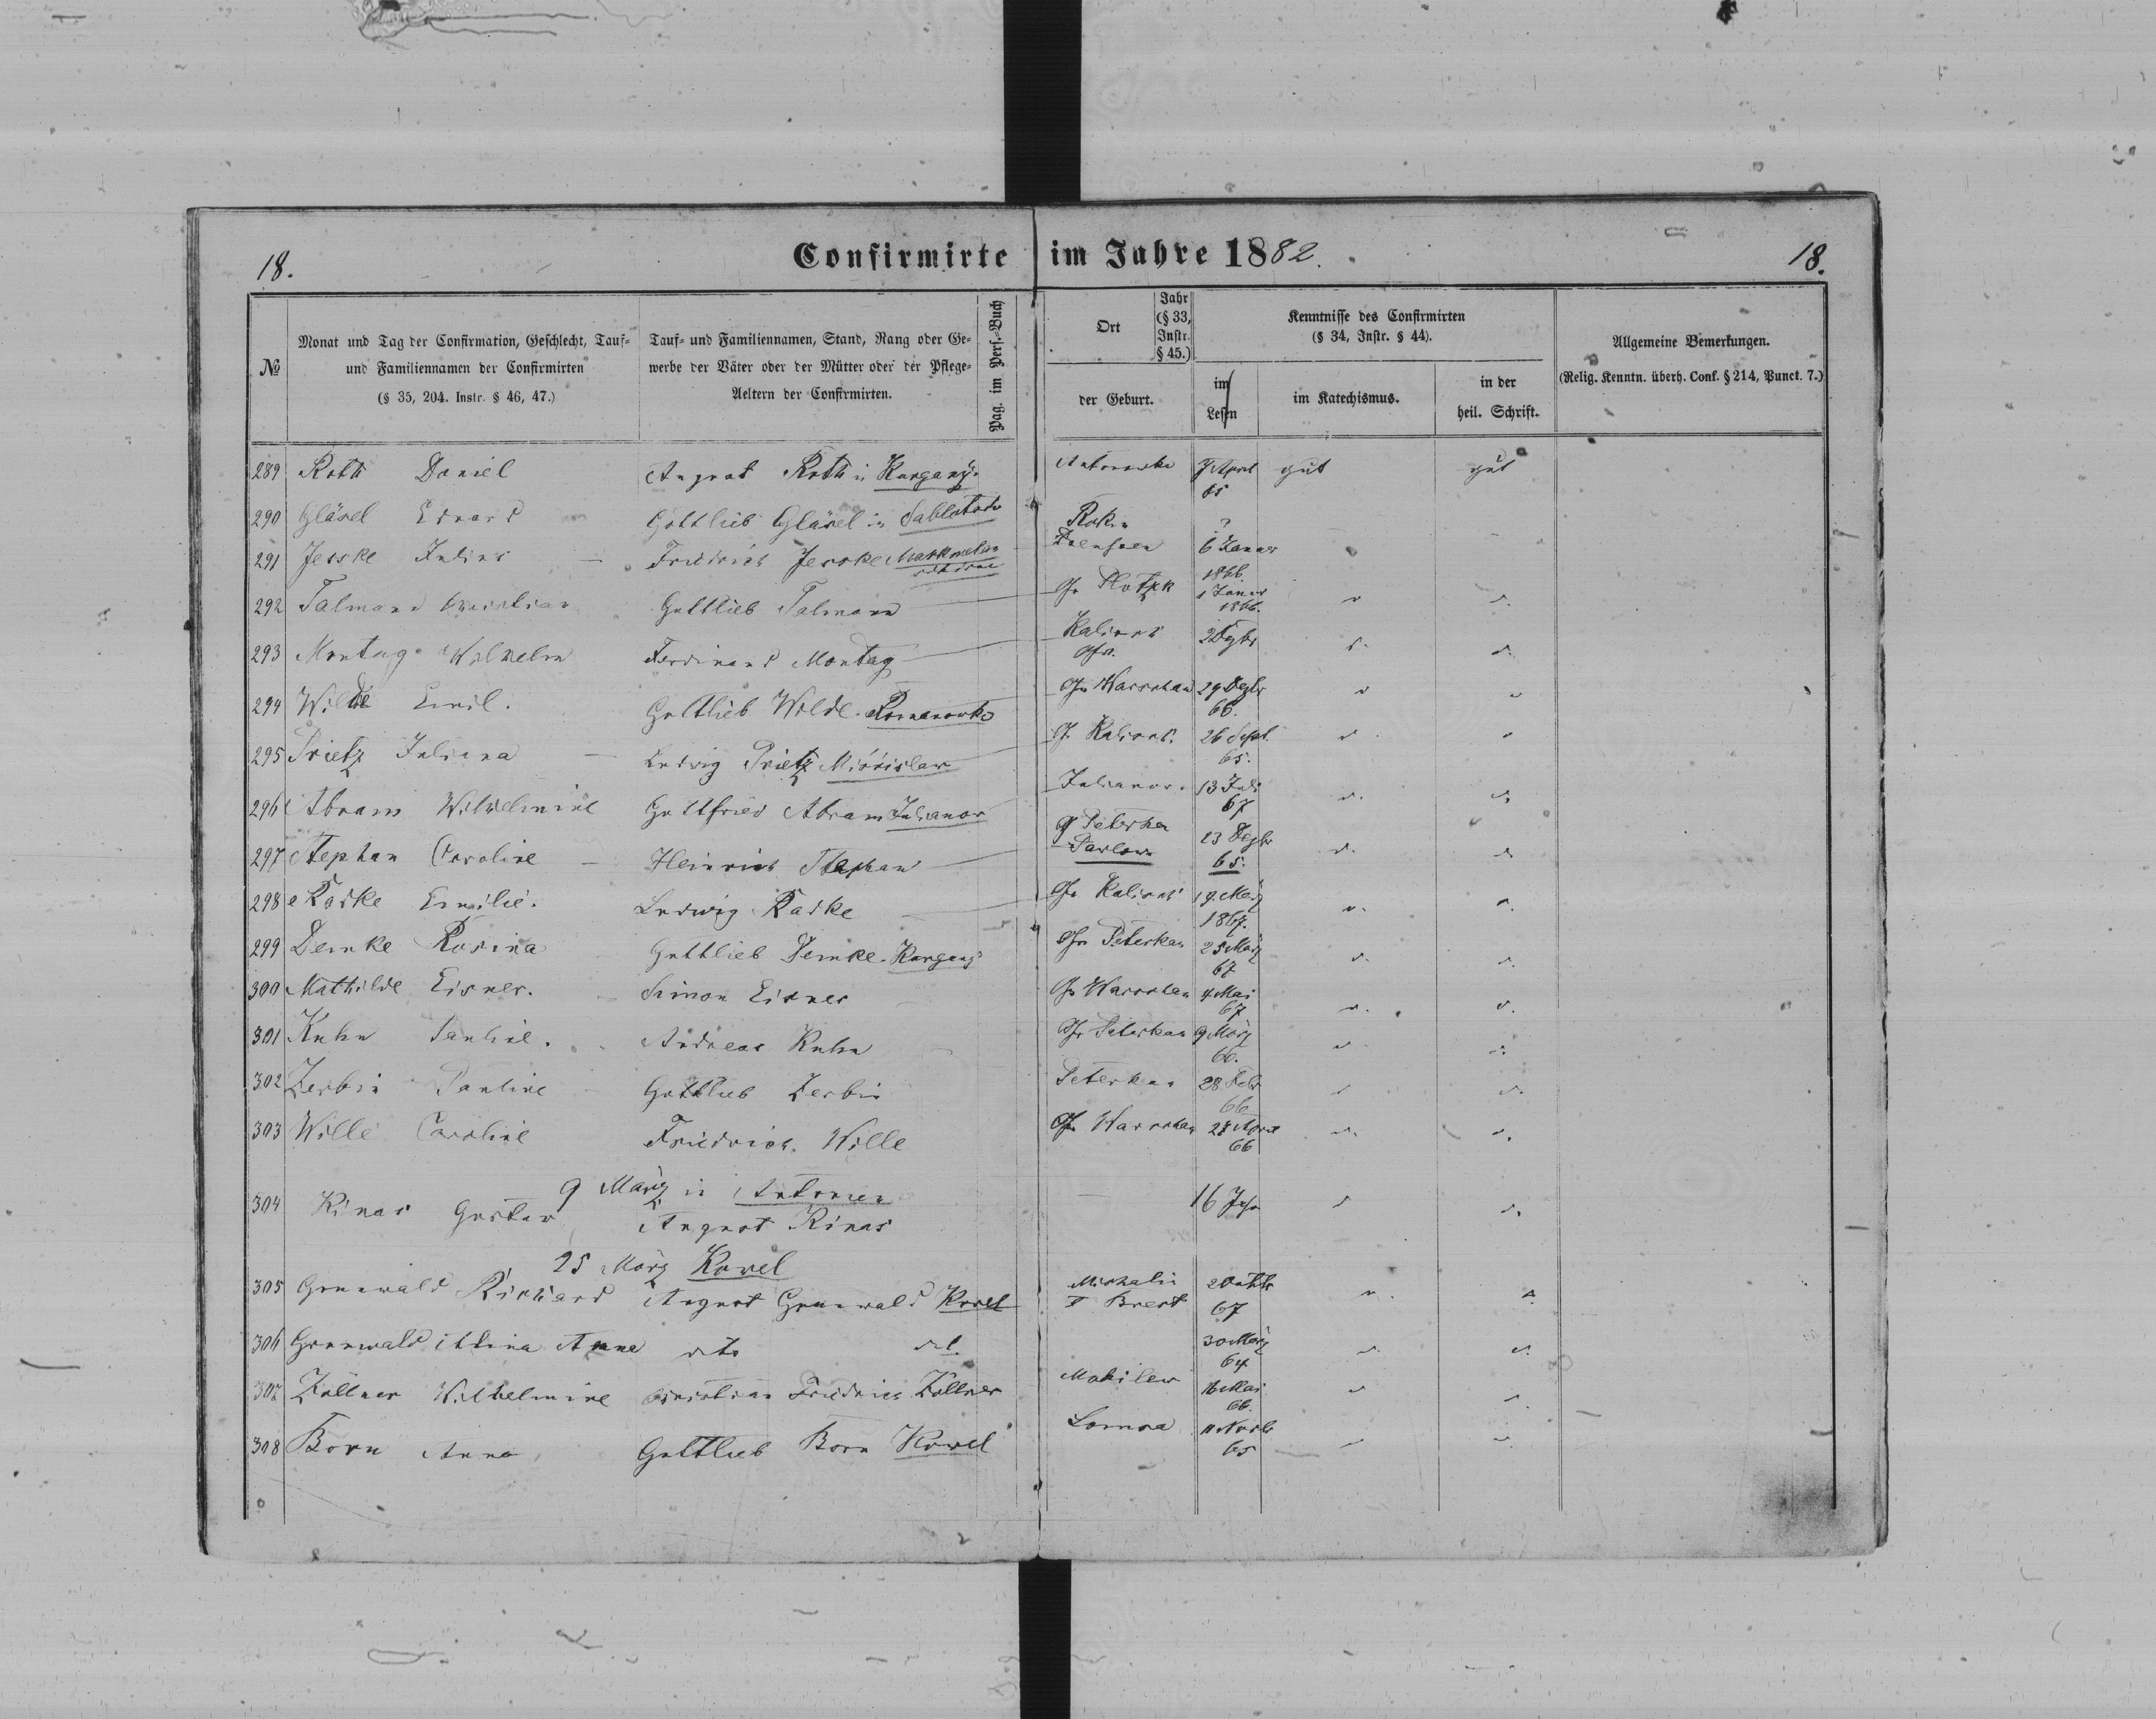 18.
Confirmirte im Jahre 1882.
18.
№
Monat und Tag der Confirmation, Geschlecht, Tauf-
und Familiennamen der Confirmirten
(§ 35, 204. Instr. § 46, 47.)
Tauf- und Familiennamen, Stand, Rang oder Ge-
werbe der Väter oder der Mütter oder der Pflege-
Aeltern der Confirmirten.
Pag. im Pers.-Buch
Ort
der Geburt.
Jahr
(§ 33,
Instr.
§ 45.)
Kenntnisse des Confirmirten
(§ 34, Instr. § 44).
im
Lesen
im Katechismus.
in der
heil. Schrift.
Allgemeine Bemerkungen.
(Relig. Kenntn. überh. Conf. § 214, Punct. 7.)
289 Roth Daniel August Roth in Kurgany. 7 April gut gut
65
290 Gläsel Eduard Gottlieb Gläsel in ?
291 Jesske Julius Friedrich Jesske 6 Januar
1866
292 Talmann Christian Gottlieb Talmann Gv Plotzk 1 Januar
1866.
293 Montag Wilhelm Ferdinand Montag Kalisch
294 Wilde Emil. Gottlieb Wilde. Romanowko Gv Warschau 29 Dezbr
66.
295 Prietz Juliana Ludwig Prietz Mirislaw G. Kalisch. 26 Sept.
65.
296 Abram Wilhelmine Gottfried Abram Julianow Julianow. 13 Juli
67
297 Stephan Caroline Heinrich Stephan G Peterkau 23 Dezbr
Pawlow 65.
298 Radke Emilie. Ludwig Radke Gv Kalisch 19. März
1867.
299 Demke Rosina Gottlieb Demke. Kurgany Gv Peterkau 25 März
67
300 Mathilde Eisner. Simon Eisner Gv Warschau 4 Mai
67
301 Kuhn Pauline. Andreas Kuhn Gv Peterkau 9 März
66.
302 Zerbin Pauline Gottlieb Zerbin Peterkau 28 Febr
66
303 Wille Caroline Friedrich Wille Gv Warschau 27 April
66
9 März in Antonien
304 Rinas Gustav August Rinas 16 Jahr
25 März Kowel
305 Grunwald Richard August Grunwald Kowel Michalin 2 Octbr
Brest 67
306 Grunwald Anna dito dt. 30 März
64
307 Zöllner Wilhelmine Christian Friedrich Zöllner Mohilew 16 Mai
66.
308 Born Anna Gottlieb Born Kowel Lomsa 11 Novb
65